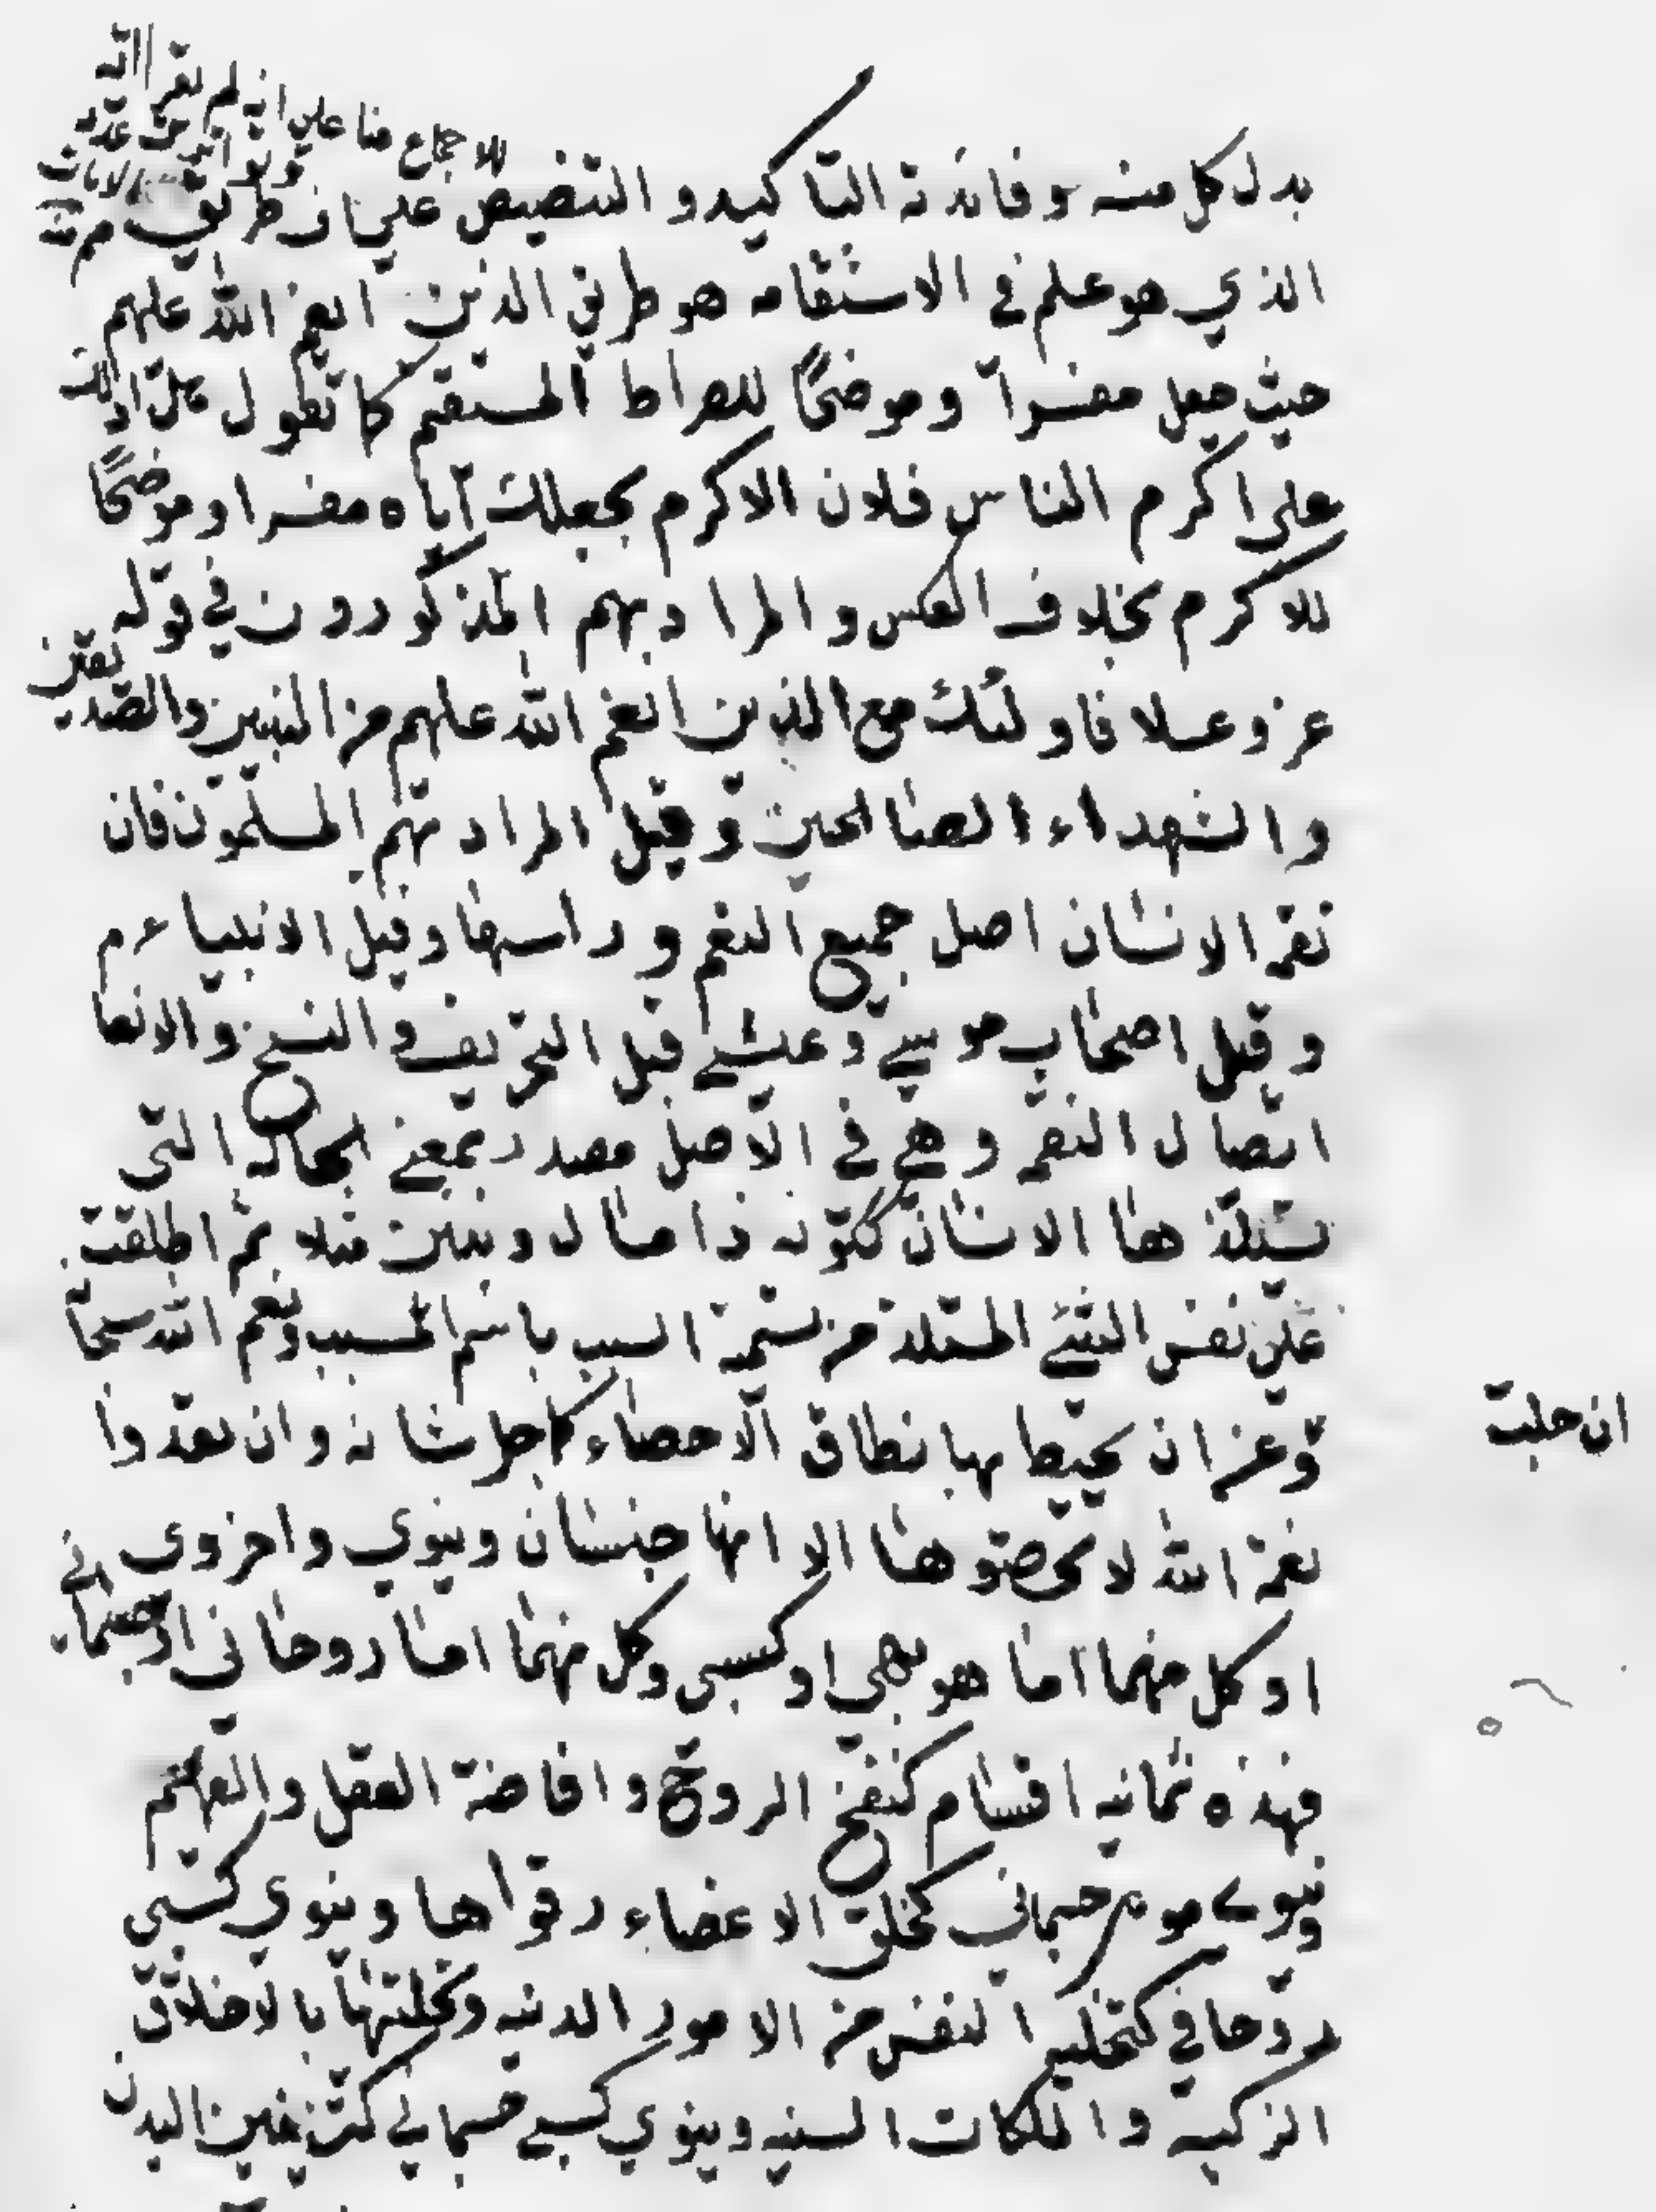 للاجماع منا على انه لم يقرا الله
بدل كل منه وفائدته التاكيد والتنصيص على ان طريق
الذي هو علم في الاستقامه هو طريق الذين انعم الله عليهم
حيث جعل مفسراً وموضحاً للصراط المستقيم كما تقول هل ادلك
على اكرم الناس فلان الاكرم بجعلك اياه مفسرا وموضحاً
للاكرم بخلاف العكس والمراد بهم المذكورون في قوله
عز وعلا فاولئك مع الذين انعم الله عليهم من النبيين والصديقين
والشهداء الصالحين وقيل المراد بهم المسلمون فان
نعمة الانسان اصل جميع النعم وراسها وقيل الانبياء عم
وقيل اصحاب موسى وعيسى قبل التحريف والنسخ والانعا
ايصال النعمة وهي في الاصل مصدر بمعنى الحالة التي
يستلذها الانسان ككونه ذا مال وبنين مثلا ثم اطلقت
على نفس الشئ المستلذ من تسمية السبب باسم المسبب ونعم الله سبحا
وعز ان يحيط بها نطاق الاحصاء كما جل شانه وان تعدوا
ان جلت
نعمة الله لا تحصوها الا انها جنسان دنيوي واخروي
او كل منهما اما موهبي او كسبي وكل منهما اما روحاني او جسماني
فهذه ثمانيه اقسام كنفخ الروح وافاضة العقل والفهم
دنيوي موهبي جسماني كخلق الاعضاء وقواها دنيوي كسبي
روحاني كتخلية النفس من الامور الدنيه وتحليتها بالاخلاق
الزكية والملكات السنيه دنيوي كسبي جسماني كتزيين البدن